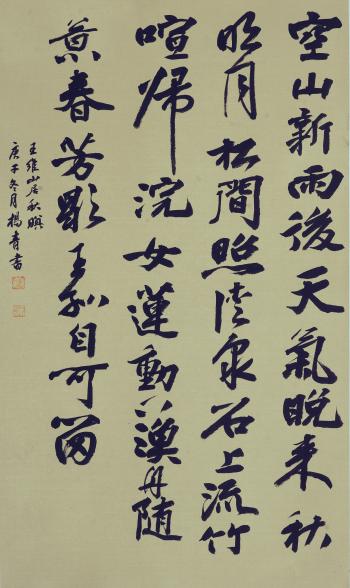 空山新雨後天氣晚来秋
明月松間照清泉石上流竹
喧歸浣女蓮動下漁舟随
意春芳歇王孫自可留
王維山居秋暝
庚子冬月楊青書